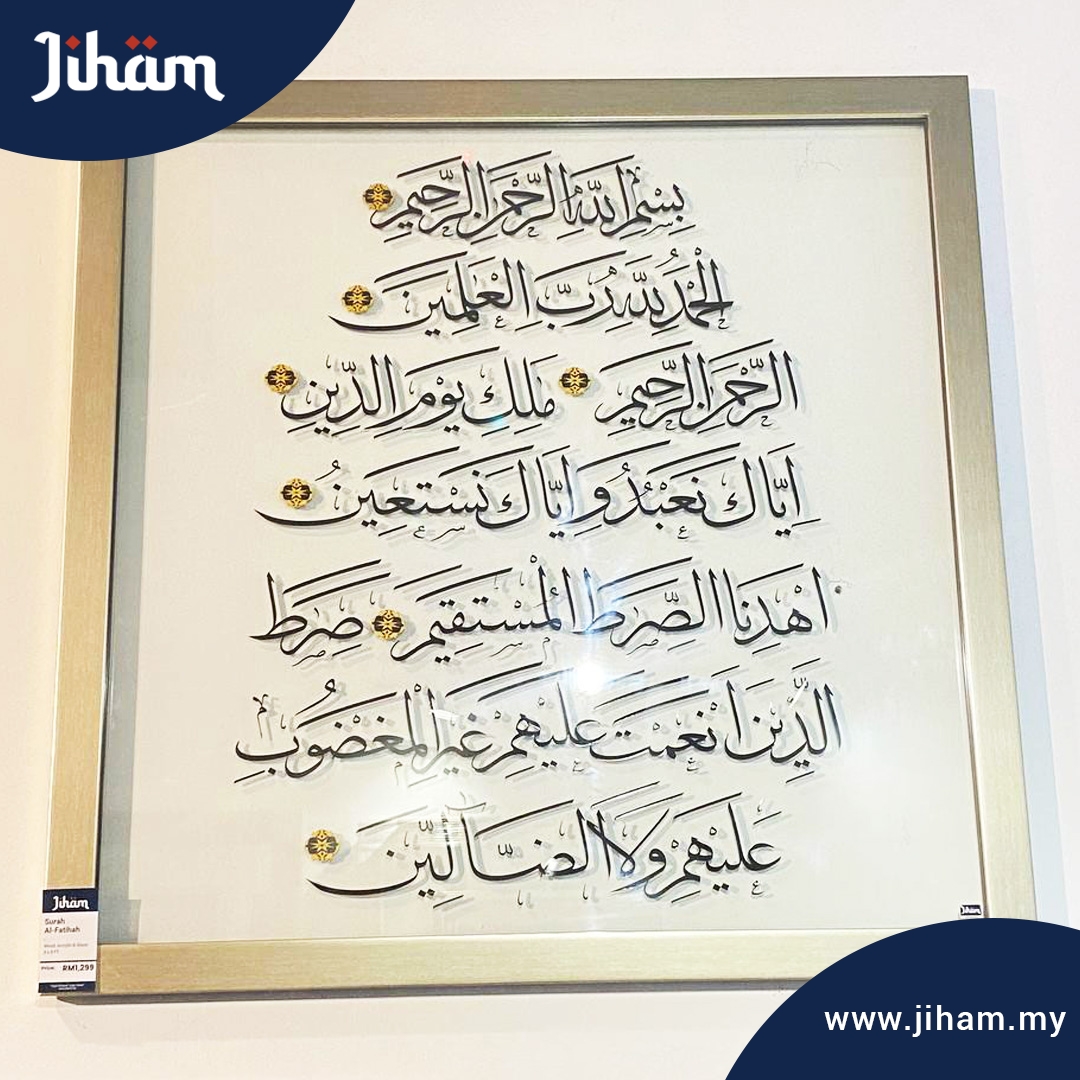 Jihäm
بِسْمِ اللّٰهِ الرَّحْمٰنِ الرَّحِيمِ
اَلْحَمْدُ لِلّٰهِ رَبِّ الْعٰلَمِينَ
الرَّحْمٰنِ الرَّحِيمِ مٰلِكِ يَوْمِ الدِّينِ
اِيَّاكَ نَعْبُدُ وَاِيَّاكَ نَسْتَعِينُ
اهْدِنَا الصِّرٰطَ الْمُسْتَقِيمَ صِرٰطَ
الَّذِينَ اَنْعَمْتَ عَلَيْهِمْ غَيْرِ الْمَغْضُوبِ
عَلَيْهِمْ وَلَا الضَّآلِّينَ
Jihäm
Surah
Al-Fatihah
Price: RM1,299
Jihäm
www.jiham.my